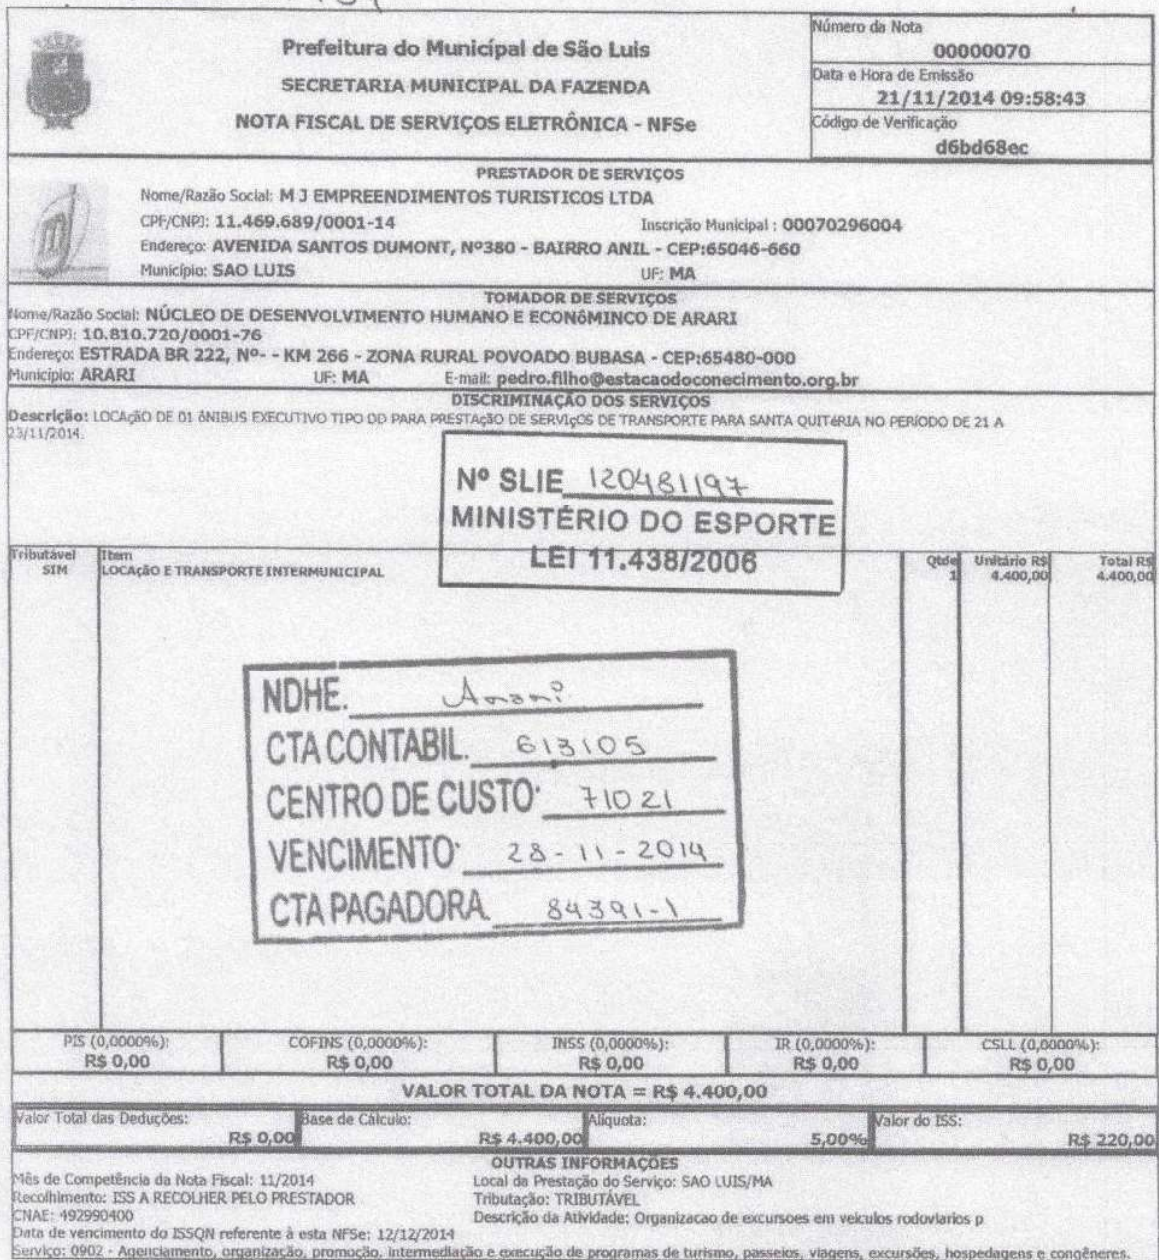 Prefeitura do Municípal de São Luis
SECRETARIA MUNICIPAL DA FAZENDA
NOTA FISCAL DE SERVIÇOS ELETRÔNICA - NFSe
Número da Nota
00000070
Data e Hora de Emissão
21/11/2014 09:58:43
Código de Verificação
d6bd68ec
PRESTADOR DE SERVIÇOS
Nome/Razão Social: M J EMPREENDIMENTOS TURISTICOS LTDA
CPF/CNPJ: 11.469.689/0001-14 Inscrição Municipal : 00070296004
Endereço: AVENIDA SANTOS DUMONT, Nº380 - BAIRRO ANIL - CEP:65046-660
Município: SAO LUIS UF: MA
TOMADOR DE SERVIÇOS
Nome/Razão Social: NÚCLEO DE DESENVOLVIMENTO HUMANO E ECONôMINCO DE ARARI
CPF/CNPJ: 10.810.720/0001-76
Endereço: ESTRADA BR 222, Nº- - KM 266 - ZONA RURAL POVOADO BUBASA - CEP:65480-000
Município: ARARI UF: MA E-mail: pedro.filho@estacaodoconecimento.org.br
DISCRIMINAÇÃO DOS SERVIÇOS
Descrição: LOCAçãO DE 01 ôNIBUS EXECUTIVO TIPO DD PARA PRESTAçãO DE SERVIçOS DE TRANSPORTE PARA SANTA QUITéRIA NO PERÍODO DE 21 A
23/11/2014.
Nº SLIE 120481197
MINISTÉRIO DO ESPORTE
LEI 11.438/2006
Tributável Item Qtde Unitário R$ Total R$
SIM LOCAçãO E TRANSPORTE INTERMUNICIPAL 1 4.400,00 4.400,00
NDHE. Arari
CTA CONTABIL. 613105
CENTRO DE CUSTO 71021
VENCIMENTO 28-11-2014
CTA PAGADORA 84391-1
PIS (0,0000%): COFINS (0,0000%): INSS (0,0000%): IR (0,0000%): CSLL (0,0000%):
R$ 0,00 R$ 0,00 R$ 0,00 R$ 0,00 R$ 0,00
VALOR TOTAL DA NOTA = R$ 4.400,00
Valor Total das Deduções: Base de Cálculo: Alíquota: Valor do ISS:
R$ 0,00 R$ 4.400,00 5,00% R$ 220,00
OUTRAS INFORMAÇÕES
Mês de Competência da Nota Fiscal: 11/2014 Local da Prestação do Serviço: SAO LUIS/MA
Recolhimento: ISS A RECOLHER PELO PRESTADOR Tributação: TRIBUTÁVEL
CNAE: 492990400 Descrição da Atividade: Organizacao de excursoes em veiculos rodoviarios p
Data de vencimento do ISSQN referente à esta NFSe: 12/12/2014
Serviço: 0902 - Agenciamento, organização, promoção, intermediação e execução de programas de turismo, passeios, viagens, excursões, hospedagens e congêneres.